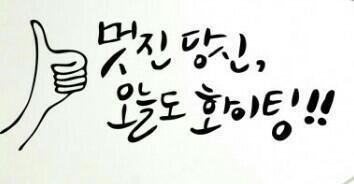 멋진 당신,
오늘도 화이팅!!